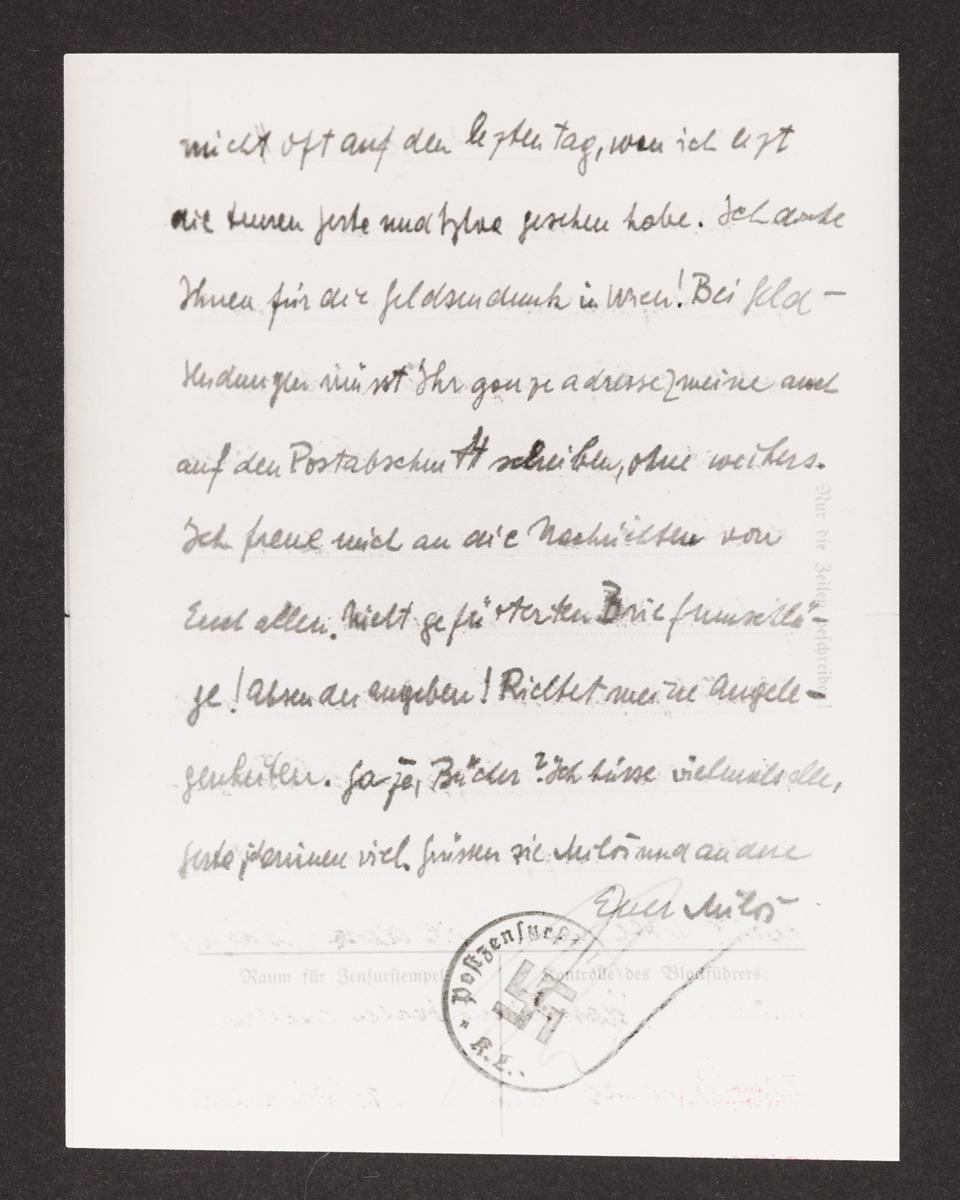 nicht oft auf den lezten tag, wen ich lezt
die teuren geste und gesehen habe. Ich danke
Ihnen für die geldsendunk in Wien! Bei geld-
sendungen müsst Ihr ganze adresse meine auch
auf den Postabschnitt schreiben, ohne weiters.
Ich freue mich an die Nachrichten von
Euch allen. Nicht gefüterten Briefumschlä-
ge! Absender angeben! Richtet meine Angele-
genheiten. Ja, Bücher? Ich küsse vielmals alle,
viel. Grüssen sie Miloš und andere
Euer Miloš
Nur die Zeilen beschreiben!
Raum für Zensurstempel:
Kontrolle des Blockführers:
Postzensurstelle
K.L.